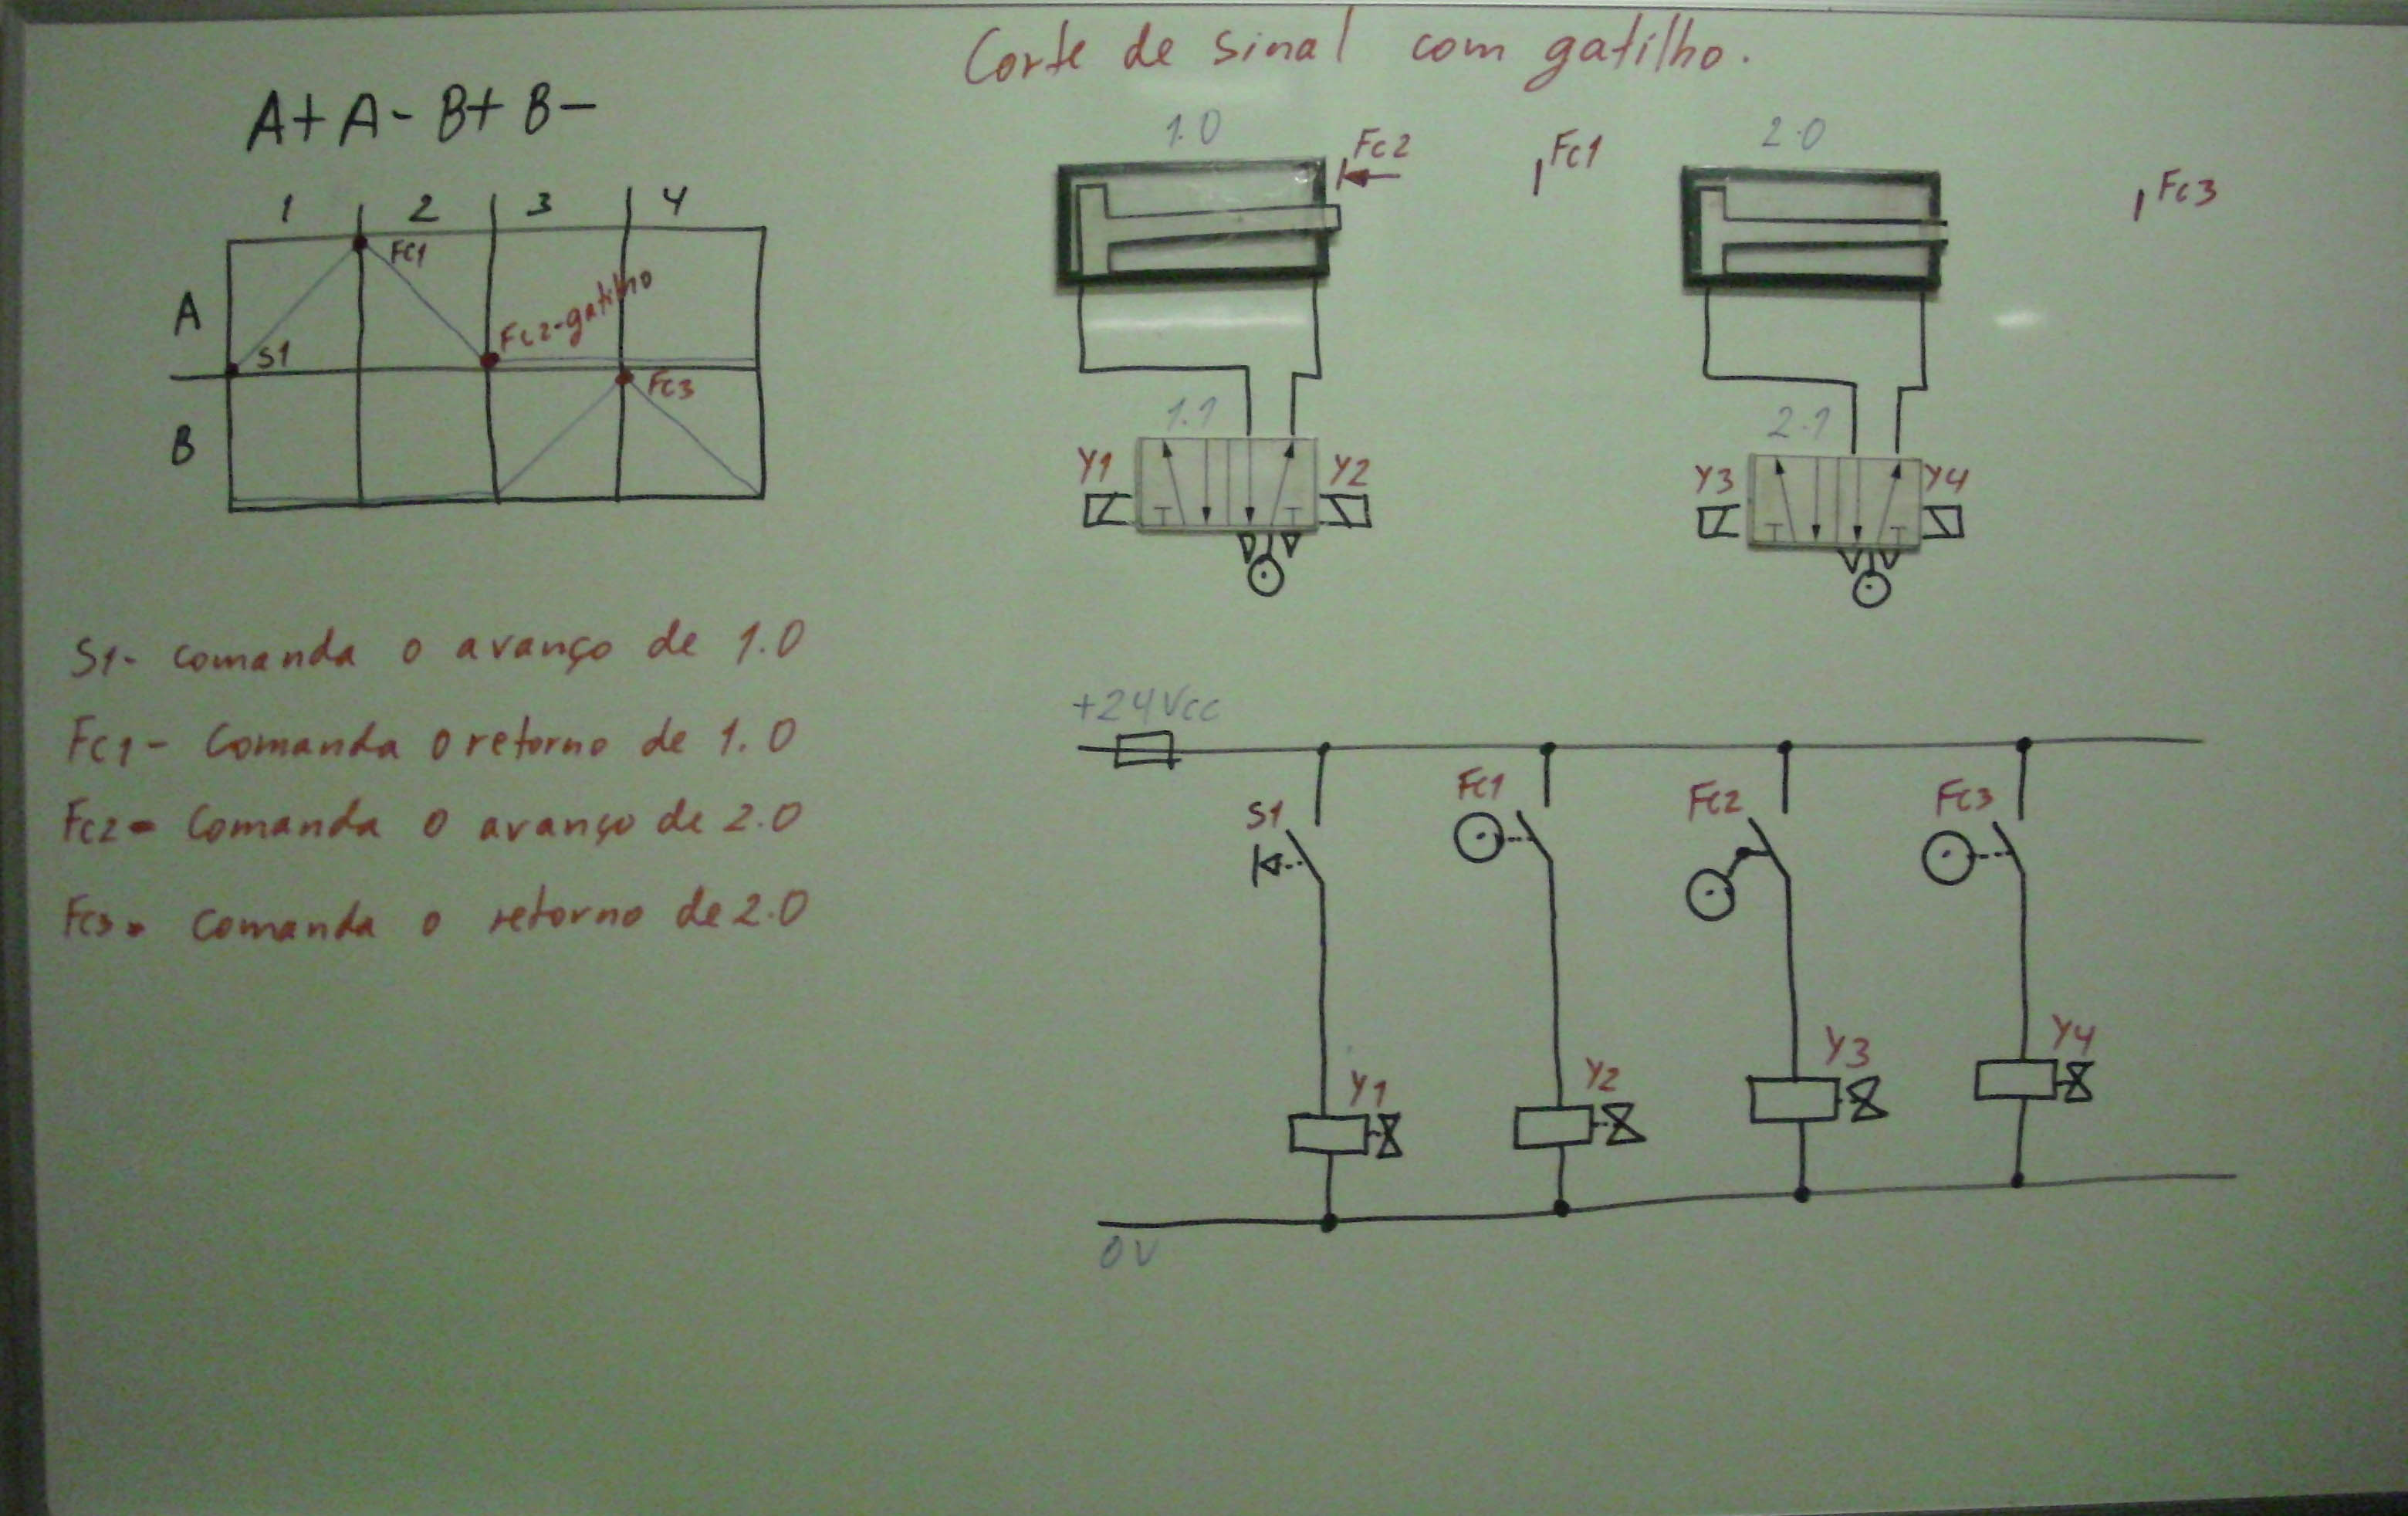 Corte de sinal com gatilho.
A+ A- B+ B-
1 2 3 4
Fc1
A
Fc2-gatilho
S1
Fc3
B
1.0
Fc2
Fc1
2.0
Fc3
1.1
Y1
Y2
2.1
Y3
Y4
S1- comanda o avanço de 1.0
Fc1- Comanda o retorno de 1.0
Fc2- Comanda o avanço de 2.0
Fc3- Comanda o retorno de 2.0
+24Vcc
S1
Fc1
Fc2
Fc3
Y1
Y2
Y3
Y4
0V